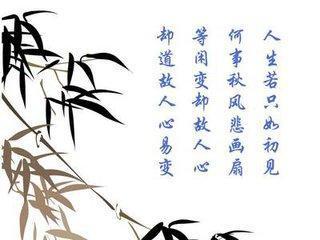 人生若只如初见
何事秋风悲画扇
等闲变却故人心
却道故人心易变